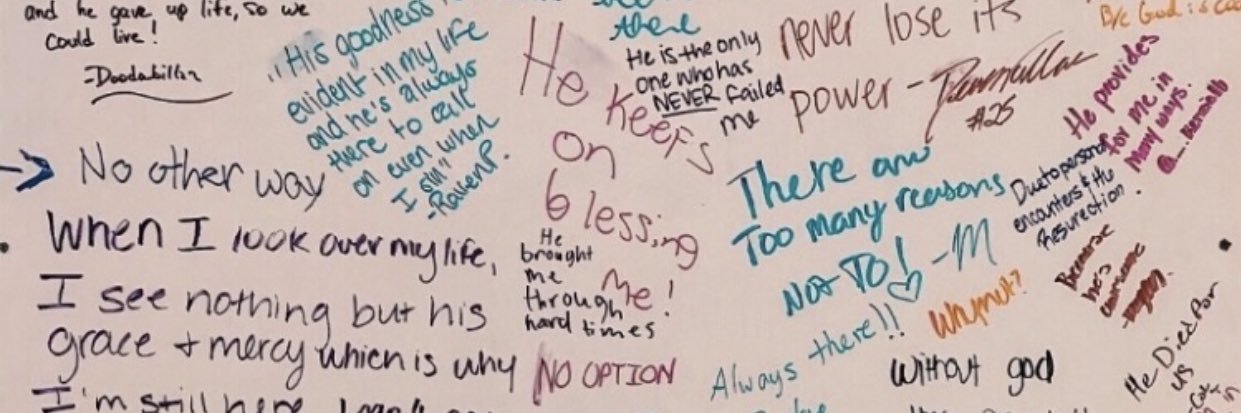 and he gave up life, so we
could live!
"His goodness is
evident in my life
and he's always
there to call
on even when
I sin"
-Raven P.
there
He is the only
one who has
NEVER failed
me
never lose its
power -
#25
B/c God is
He provides
for me in
many ways.
He
keeps
on
blessing
me!
→ No other way
There are
too many reasons
NOT TO! -M
Due to personal
encounters & the
Resurrection.
When I look over my life,
I see nothing but his
grace + mercy which is why
I'm still here
He
brought
me
through
hard times
Because
he's
awesome
Why not?
Always there!!
NO OPTION
Without god
He Died For
us